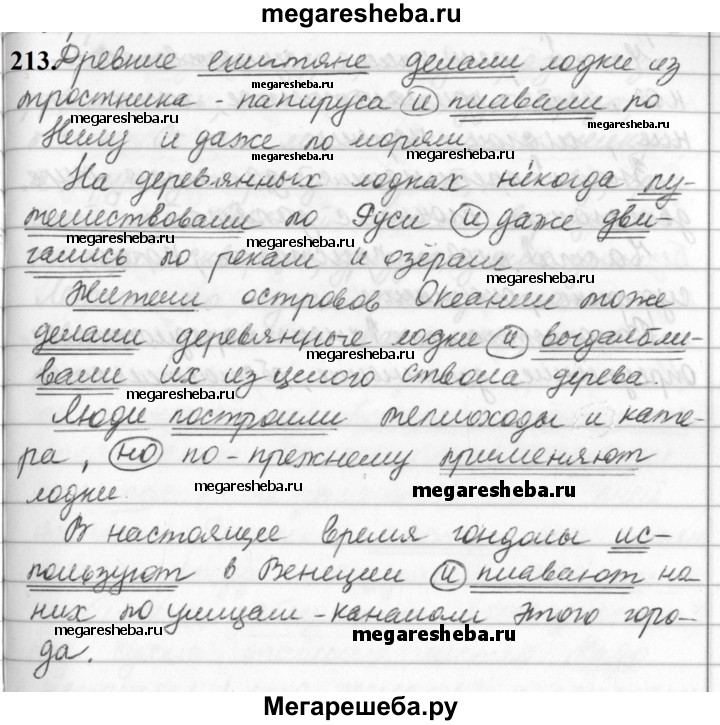 megaresheba.ru
213. Древние египтяне делали лодки из
megaresheba.ru
megaresheba.ru
тростника - папируса и плавали по
megaresheba.ru
megaresheba.ru
Нилу и даже по морям.
На деревянных лодках некогда пу-
тешествовали по Руси и даже дви-
megaresheba.ru
гались по рекам и озёрам.
megaresheba.ru
Жители островов Океании тоже
megaresheba.ru
делали деревянные лодки и выдалбли-
megaresheba.ru
вали их из целого ствола дерева.
Люди построили теплоходы и кате-
megaresheba.ru
ра, но по-прежнему применяют
лодки.
megaresheba.ru
megaresheba.ru
В настоящее время гондолы ис-
пользуют в Венеции и плавают на
megaresheba.ru
них по улицам - каналам этого горо-
megaresheba.ru
megaresheba.ru
да.
Мегарешеба.ру